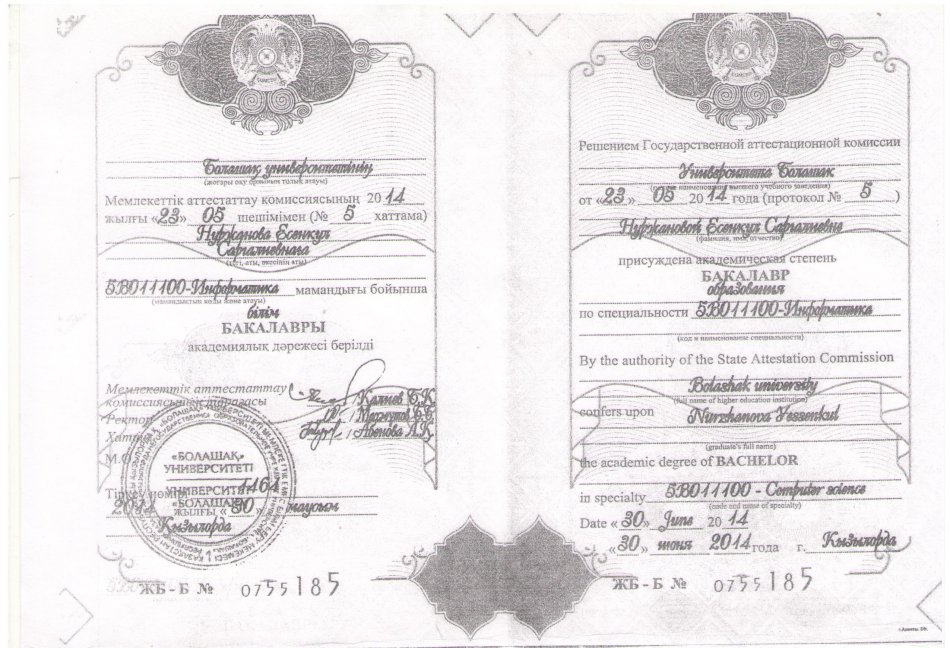 Болашақ университетінің
(жоғары оқу орнының толық атауы)
Мемлекеттік аттестаттау комиссиясының 2014
жылғы «23» 05 шешімімен (№ 5 хаттама)
Нуржанова Есенкул
Сағалиевнаға
(тегі, аты, әкесінің аты)
5В011100-Информатика мамандығы бойынша
(мамандықтың коды және атауы)
білім
БАКАЛАВРЫ
академиялық дәрежесі берілді
Мемлекеттік аттестаттау
комиссиясының төрағасы
Ректор
Хатшы
М.О.
«БОЛАШАҚ»
УНИВЕРСИТЕТІ
УНИВЕРСИТЕТ
«БОЛАШАК»
Тіркеу нөмірі 1164
2014 жылғы «30» маусым
Кызылорда
ЖБ - Б № 0755185
Решением Государственной аттестационной комиссии
Университета Болашак
(полное наименование высшего учебного заведения)
от «23» 05 2014 года (протокол № 5)
Нуржановой Есенкул
(фамилия, имя, отчество)
присуждена академическая степень
БАКАЛАВР
образования
по специальности 5В011100-Информатика
(код и наименование специальности)
By the authority of the State Attestation Commission
Bolashak university
(full name of higher education institution)
confers upon Nurzhanova Yessenkul
(graduate's full name)
the academic degree of BACHELOR
in specialty 5B011100 - Computer science
(code and name of specialty)
Date «30» June 2014
«30» июня 2014 года г. Кызылорда
ЖБ - Б № 0755185